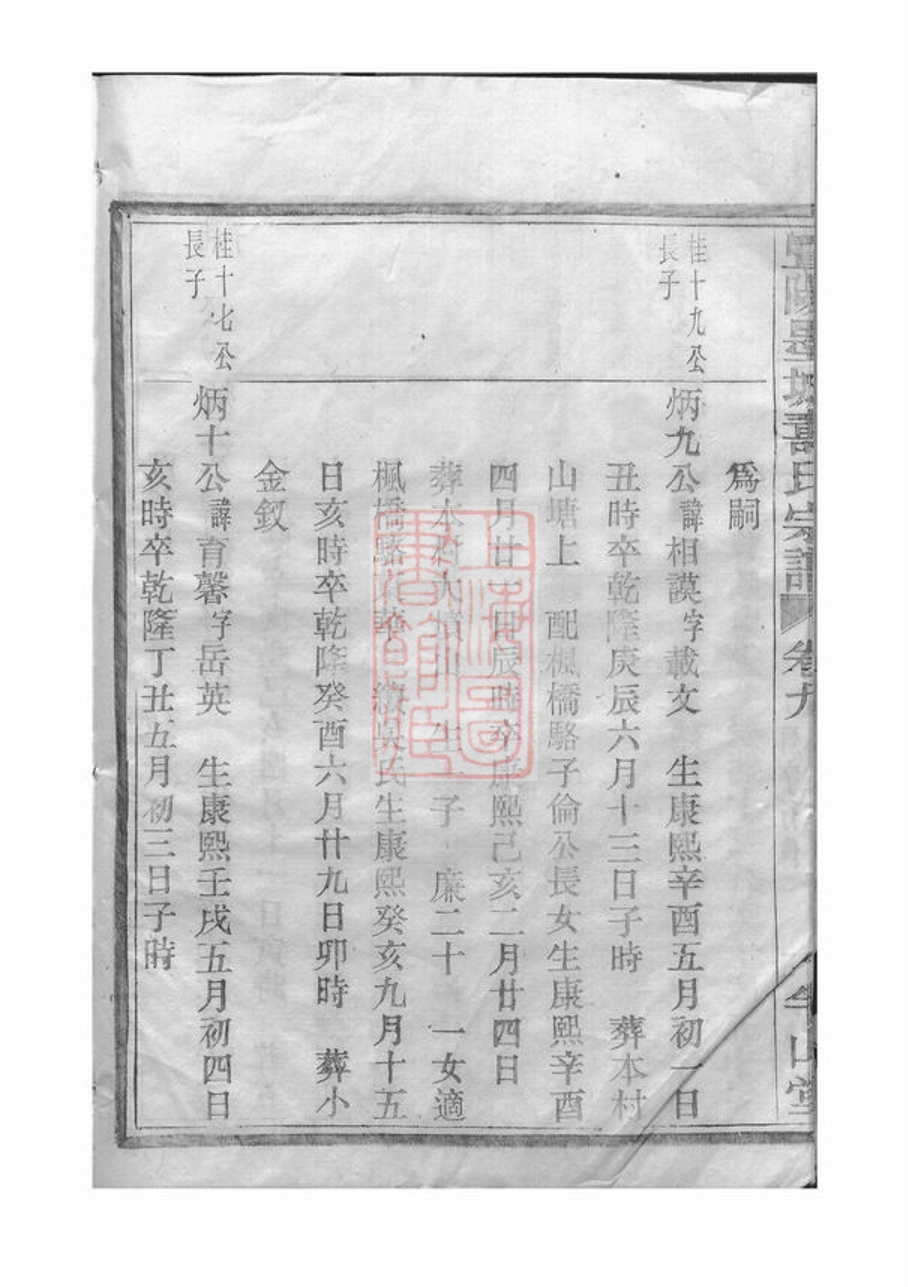 宗譜
卷九
山堂
爲嗣
桂十九公
長子
炳九公諱相謨字載文 生康熙辛酉五月初一日
丑時卒乾隆庚辰六月十三日子時 葬本村
山塘上 配楓橋駱子倫公長女生康熙辛酉
四月廿一日辰時卒康熙己亥二月廿四日
葬本村大墳山 生一子 廉二十 一女適
楓橋駱 華 繼吳氏生康熙癸亥九月十五
日亥時卒乾隆癸酉六月廿九日卯時 葬小
金釵
桂十七公
長子
炳十公諱育馨字岳英 生康熙壬戌五月初四日
亥時卒乾隆丁丑五月初三日子時
上海圖
書館藏